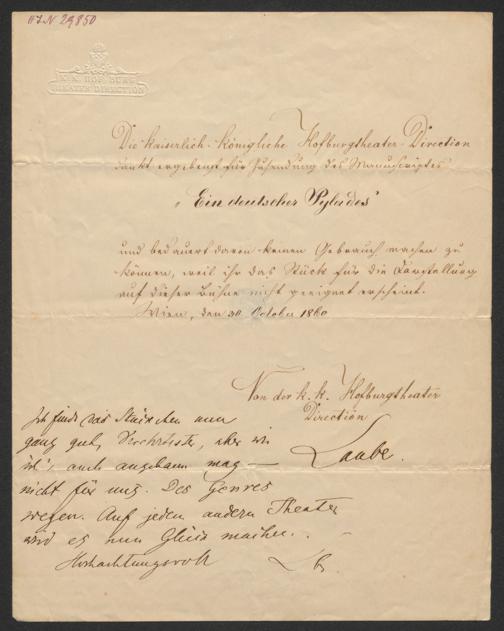 K. K. HOF-BURG
THEATER DIRECTION
Die kaiserlich-königliche Hofburgtheater-Direction
dankt ergebenst für Zusendung des Manuscriptes
„Ein deutscher Pylades“
und bedauert davon keinen Gebrauch machen zu
können, weil ihr das Stück für die Darstellung
auf dieser Bühne nicht geeignet erscheint.
Wien, den 30 October 1860
Von der k. k. Hofburgtheater
Direction
Laube.
Ich finde das Stückchen nun
ganz gut, aber wie
ich's auch ansehen mag —
nicht für uns. Des Genres
wegen. Auf jedem andern Theater
wird es nun Glück machen.
Hochachtungsvoll